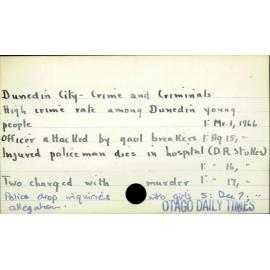 Dunedin City - Crime and Criminals
High crime rate among Dunedin young
people 1: Mr. 1, 1966
Officer attacked by gaol breakers 1: Ag 15, "
Injured policeman dies in hospital (D.R. Stokes)
1: " 16, "
Two charged with murder 1: " 17, "
Police drop inquiries into girls 5: Dec 7. "
allegation.
OTAGO DAILY TIMES